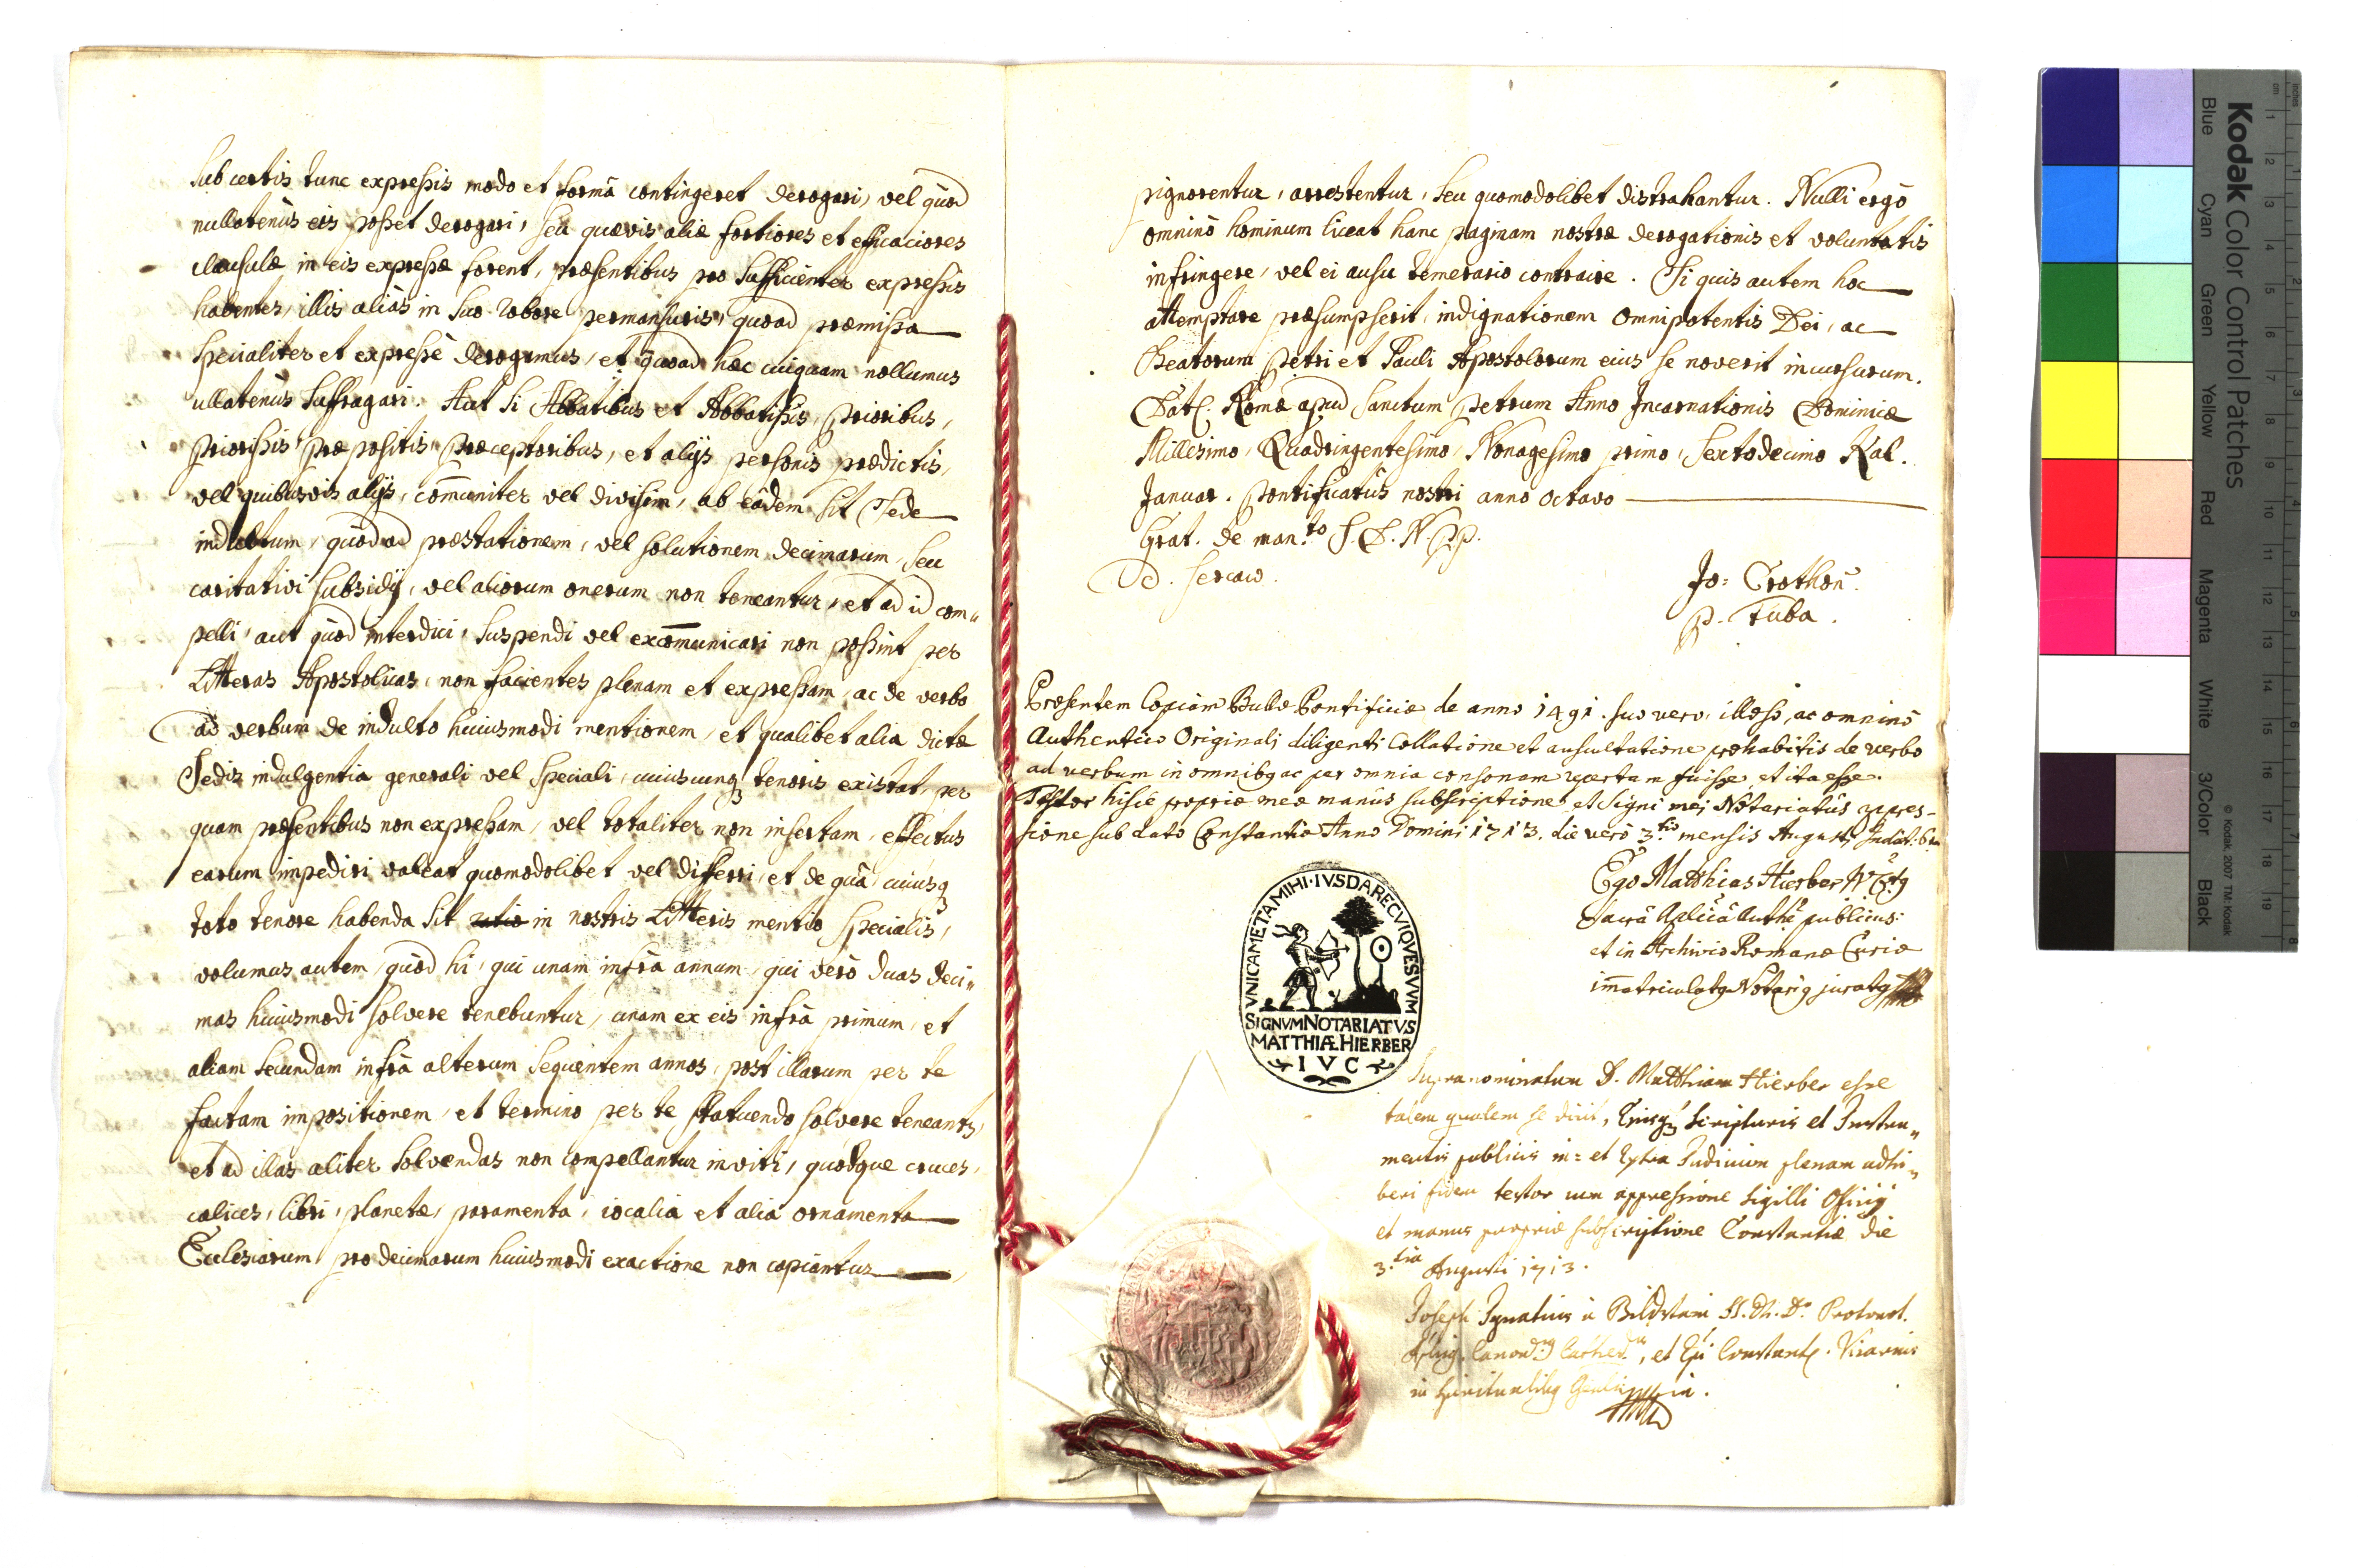 sub certis tunc expressis modo et formâ contingeret derogari, vel quòd
nullatenùs eis posset derogari, seu quævis aliæ fortiores et efficaciores
clausulæ in eis expressæ forent, præsentibus pro sufficienter expressis
habentes, illis aliàs in suo robore permansuris, quoad præmissa
specialiter et expressè derogamus, et quoad hæc cuiquam nollumus
ullatenùs suffragari. Aut si Abbatibus et Abbatissis, Prioribus,
Priorissis præpositis, Præceptoribus, et alijs personis prædictis,
vel quibusvis alijs, com̄uniter vel divisim, ab eâdem sit Sede
indultum, quòd ad præstationem, vel solutionem decimarum, seu
caritativi subsidij, vel aliorum onerum non teneantur, et ad id com„
pelli, aut quòd interdici, suspendi vel excom̄unicari non possint per
Litteras Apostolicas, non facientes plenam et expressam, ac de verbo
ad verbum de indulto huiusmodi mentionem, et qualibet alia dictæ
Sedis indulgentia generali vel speciali, cuiuscunq3 tenoris existat, per
quam præsentibus non expressam, vel totaliter non insertam, effectus
earum impediri valeat quomodolibet vel differri, et de quâ, cuiusq3
toto tenore habenda sit ratio in nostris Litteris mentio specialis,
volumus autem, quòd hi, qui unam infrà annum, qui verò duas deci„
mas huiusmodi solvere tenebuntur, unam ex eis infrà primum, et
aliam secundam infrà alterum sequentem annos, post illarum per te
factam impositionem, et termino per te statuendo solvere teneant3,
et ad illas aliter solvendas non compellantur inviti, quodque cruces,
calices, libri, planetæ, paramenta, iocalia et alia ornamenta
Ecclesiarum pro decimarum huiusmodi exactione non capiantur
pignorentur, arrestentur, seu quomodolibet distrahantur. Nulli ergò
omninò hominum liceat hanc paginam nostræ derogationis et voluntatis
infringere, vel ei ausu temerario contraire. Si quis autem hoc
attemptare præsumpserit, indignationem omnipotentis Dei, ac
Beatorum Petri et Pauli Apostolorum eius se noverit incursurum.
Dat. Romæ apud Sanctum Petrum Anno Incarnationis Dominicæ
Millesimo, Quadringentesimo, Nonagesimo primo, Sextodecimo Kal.
Januar. Pontificatûs nostri anno octavo
Grat. de man.to S. D. N. PP.
Jo: Crothon.
P. Tuba.
Præsentem Copiam Bullæ Pontificiæ de anno 1491. suo vero, illæso, ac omninò
Authentico Originali diligenti Collatione et auscultatione præhabitis de verbo
ad verbum in omnibq ac per omnia consonam repertam fuisse et ita esse.
Testor hisce propriæ meæ manûs subscriptione, et Signi mei Notariatûs expres-
sione sub dato Constantiæ Anno Domini 1713. die verò 3.tiâ mensis Augusti Indict. 6ta
Ego Matthias Hierber
Sacrâ Aplicâ Auth publicus:
et in Archivio Romanæ Curiæ
im̄atriculatq Notariq juratq
VNICA META MIHI · IVS DARE CVIQVE SVVM
SIGNVM NOTARIATVS
MATTHIÆ HIERBER
I V C
Supranominatum D. Matthiam Hierber esse
talem qualem se dicit, Eiusq3 Scripturis et Instru„
mentis publicis in= et Extra Judicium plenam adhi„
beri fidem testor cum appressione Sigilli Officij
et manus propriæ subscriptione Constantiæ die
3.tia Augusti 1713.
Joseph Ignatius à Bildstain SS. Th. D. Protonot.
Aplicq. Canon. Cathed., et Epi Constant. Vicarius
in spiritualibq Gnalis
Kodak Color Control Patches
Blue Cyan Green Yellow Red Magenta White 3/Color Black
© Kodak, 2007 TM: Kodak
inches
cm
1 2 3 4 5 6 7 8 9 10 11 12 13 14 15 16 17 18 19
1 2 3 4 5 6 7 8